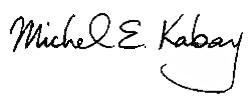 Michel E. Kabay